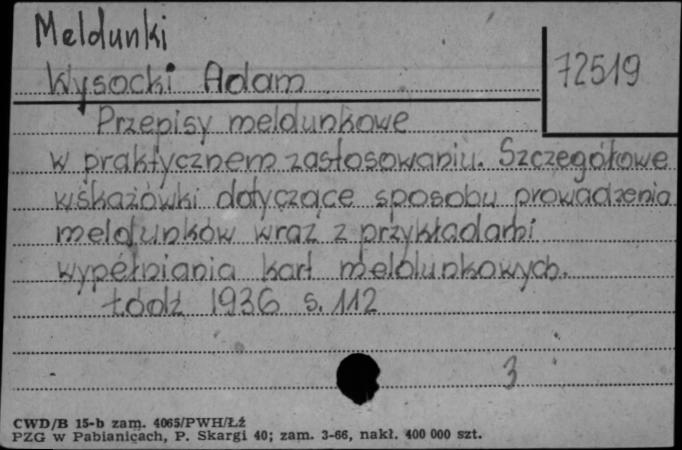 Meldunki
Wysocki Adam
72519
Przepisy meldunkowe
w praktycznem zastosowaniu. Szczegółowe
wskazówki dotyczące sposobu prowadzenia
meldunków wraz z przykładami
wypełniania kart meldunkowych.
Łódź 1936 s. 112
3
CWD/B 15-b zam. 4065/PWH/Łź
PZG w Pabianicach, P. Skargi 40; zam. 3-66, nakł. 400 000 szt.